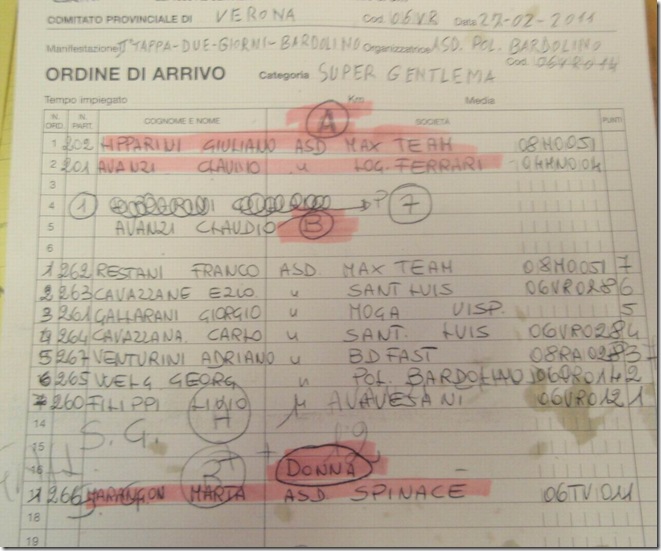 COMITATO PROVINCIALE DI VERONA Cod. 06VR Data 27-02-2011
Manifestazione II° TAPPA-DUE-GIORNI-BARDOLINO Organizzatrice ASD. POL. BARDOLINO
Cod. 06VR014
ORDINE DI ARRIVO Categoria SUPER GENTLEMA
Tempo impiegato Km Media
N. ORD. N. PART. COGNOME E NOME SOCIETÀ PUNTI
A
1 202 LIPPARINI GIULIANO ASD MAX TEAM 08MO051
2 201 AVANZI CLAUDIO " LOG. FERRARI
3
4 1 ? 7
5 AVANZI CLAUDIO B
6
1 262 RESTANI FRANCO ASD MAX TEAM 08MO051 7
2 263 CAVAZZANE EZIO " SANT LUIS 06VR028 6
3 261 GALLARANI GIORGIO " MOGA VISP. 5
4 264 CAVAZZANA CARLO " SANT. LUIS 06VR028 4
5 267 VENTURINI ADRIANO " BD FAST 08RA028 3
6 265 WELG GEORG " POL. BARDOLINO 06VR014 2
7 260 FILIPPI LINO " AVAVESANI 06VR012 1
14 A
S.G.
15
16 B DONNA
1 266 MARANGON MARTA ASD SPINACE 06TV011
18
19